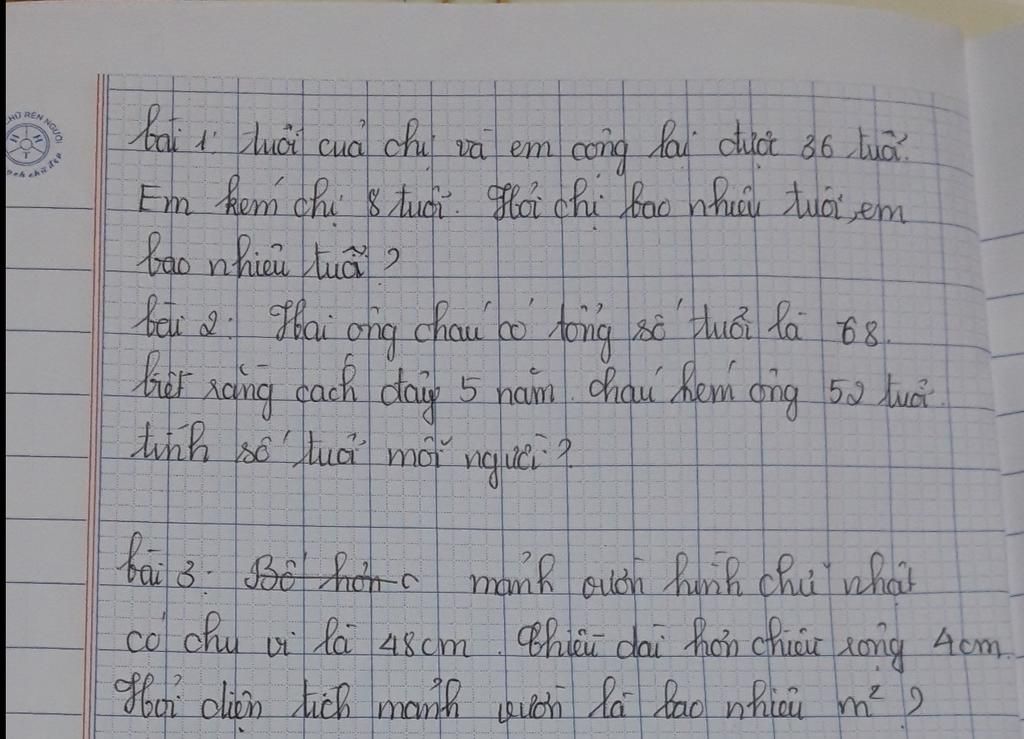 CHỮ RÈN NGƯỜI
bài 1: tuổi của chị và em cộng lại được 36 tuổi.
Em kém chị 8 tuổi. Hỏi chị bao nhiêu tuổi, em
bao nhiêu tuổi?
bài 2: Hai ông cháu có tổng số tuổi là 68.
biết rằng cách đây 5 năm. cháu kém ông 52 tuổi.
tính số tuổi mỗi người?
bài 3: Bố hơn c mảnh vườn hình chữ nhật
có chu vi là 48cm. Chiều dài hơn chiều rộng 4cm.
Hỏi diện tích mảnh vườn là bao nhiêu m²?